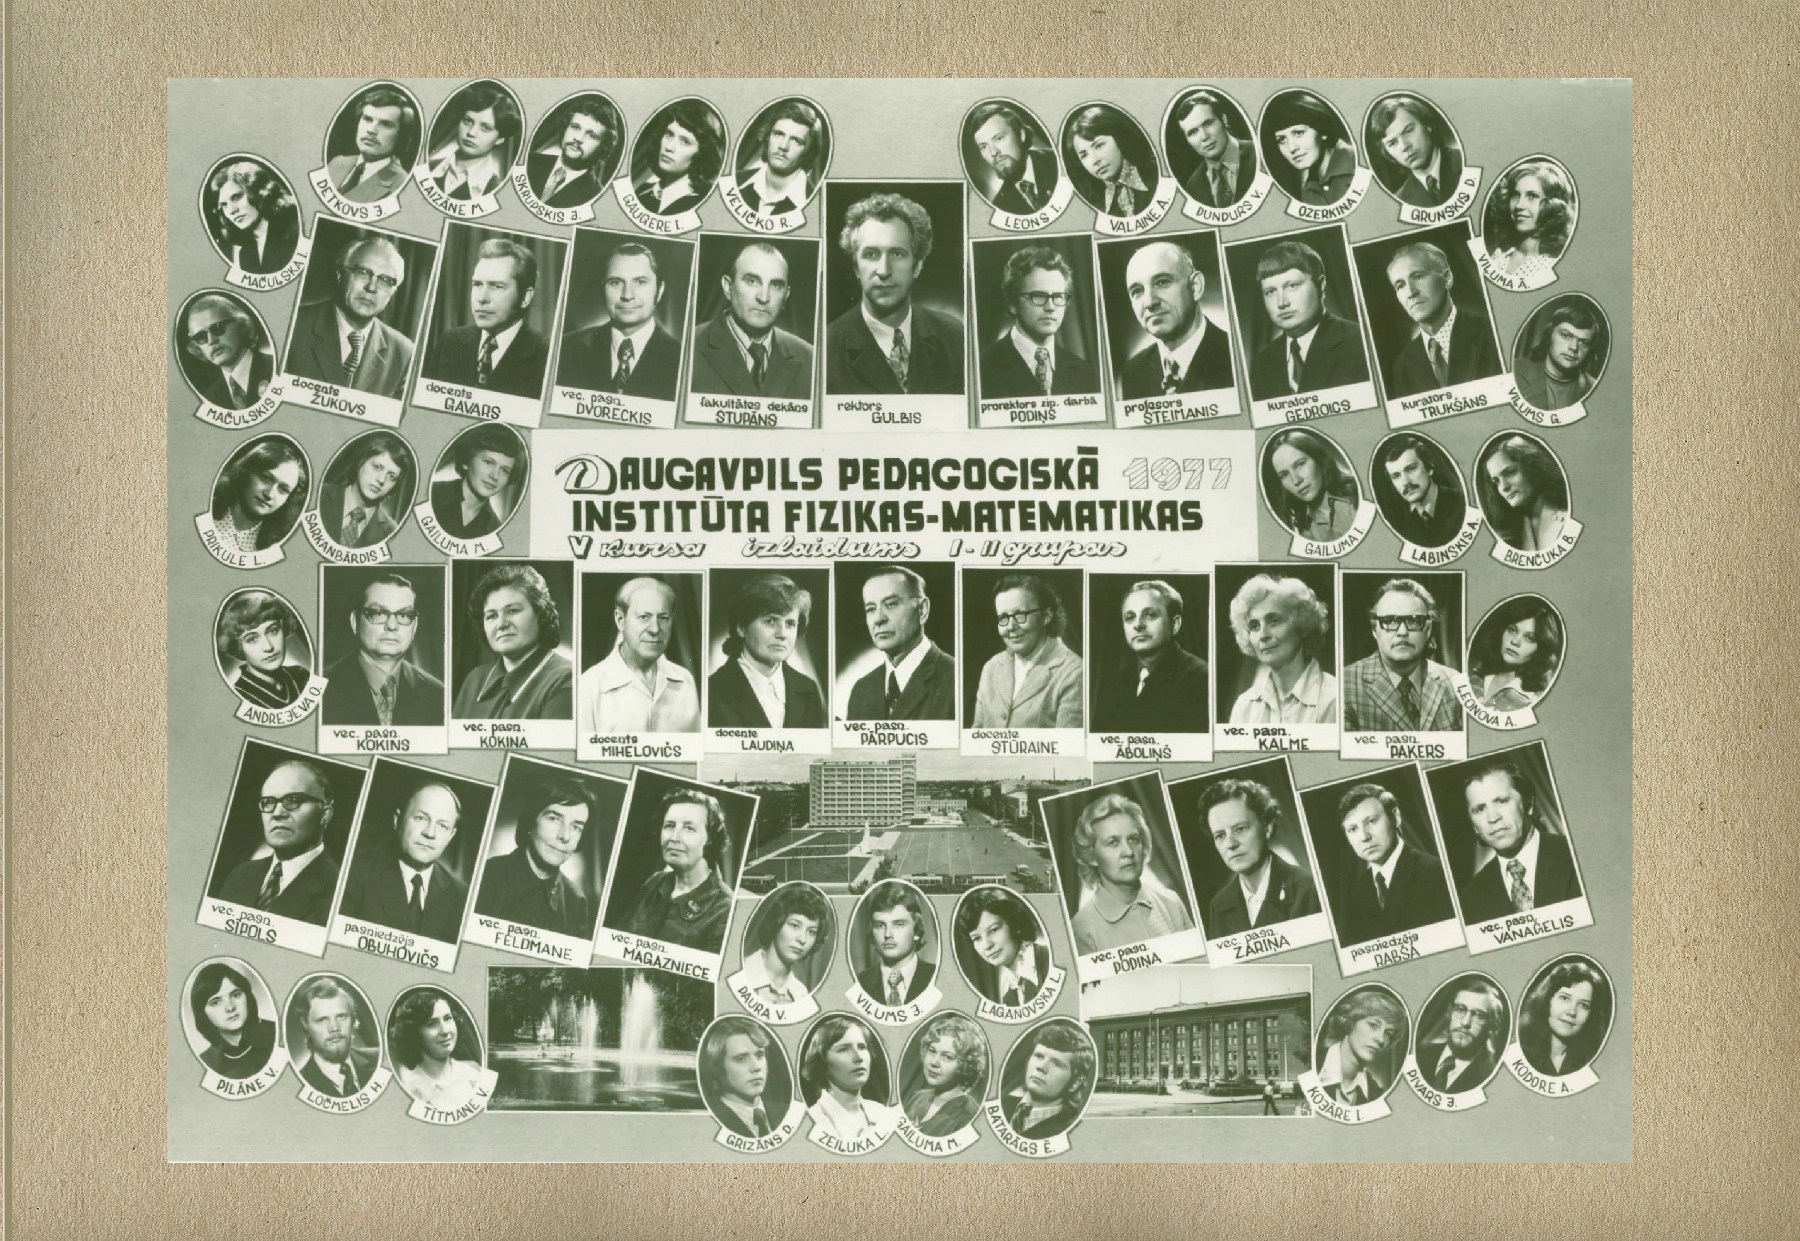 DETKOVS J.
LAIZĀNE M.
SKRUPSKIS J.
GAUGERE I.
VELIČKO R.
LEONS I.
VALAINE A.
DUNDURS V.
OZERKINA I.
GRUNSKIS D.
MAČUĻSKA I.
VIĻUMA Ā.
MAČUĻSKIS B.
docents
ŽUKOVS
docents
GAVARS
vec. pasn.
DVORECKIS
fakultātes dekāns
STUPĀNS
rektors
GULBIS
prorektors zip. darbā
PODIŅŠ
profesors
ŠTEIMANIS
kurators
GEDROICS
kurators
TRUKŠĀNS
VIĻUMS G.
DAUGAVPILS PEDAGOGISKĀ 1977
INSTITŪTA FIZIKAS-MATEMATIKAS
V kursa izlaidums I-II grupas
PRIKULE L.
SARKANBĀRDIS I.
GAILUMA M.
GAILUMA I.
LABINSKIS A.
BRENČUKA B.
ANDREJEVA O.
vec. pasn.
KOKINS
vec. pasn.
KOKINA
docents
MIHELOVIČS
docente
LAUDIŅA
vec. pasn.
PĀRPUCIS
docente
STŪRAINE
vec. pasn.
ĀBOLIŅŠ
vec. pasn.
KALME
vec. pasn.
PAKERS
LEONOVA A.
vec. pasn.
SĪPOLS
pasniedzējs
OBUHOVIČS
vec. pasn.
FELDMANE
vec. pasn.
MAGAZNIECE
vec. pasn.
PODIŅA
vec. pasn.
ZARIŅA
pasniedzējs
RABŠA
vec. pasn.
VANAĢELIS
PAURA V.
VIĻUMS J.
LAGANOVSKA L.
PILĀNE V.
LOČMELIS H.
TĪTMANE V.
GRIZĀNS D.
ZEIĻUKA L.
GAILUMA M.
BATARĀGS Ē.
KOJĀRE I.
PIVARS J.
KODORE A.